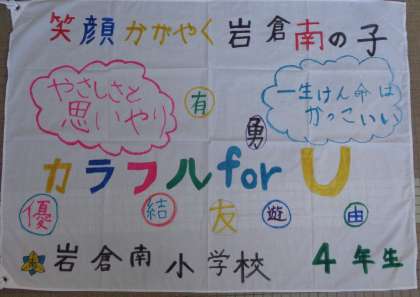 笑顔かがやく岩倉南の子
やさしさと
思いやり
有
勇
一生けん命は
かっこいい
カラフル for U
優
結
友
遊
由
岩倉南小学校 4年生